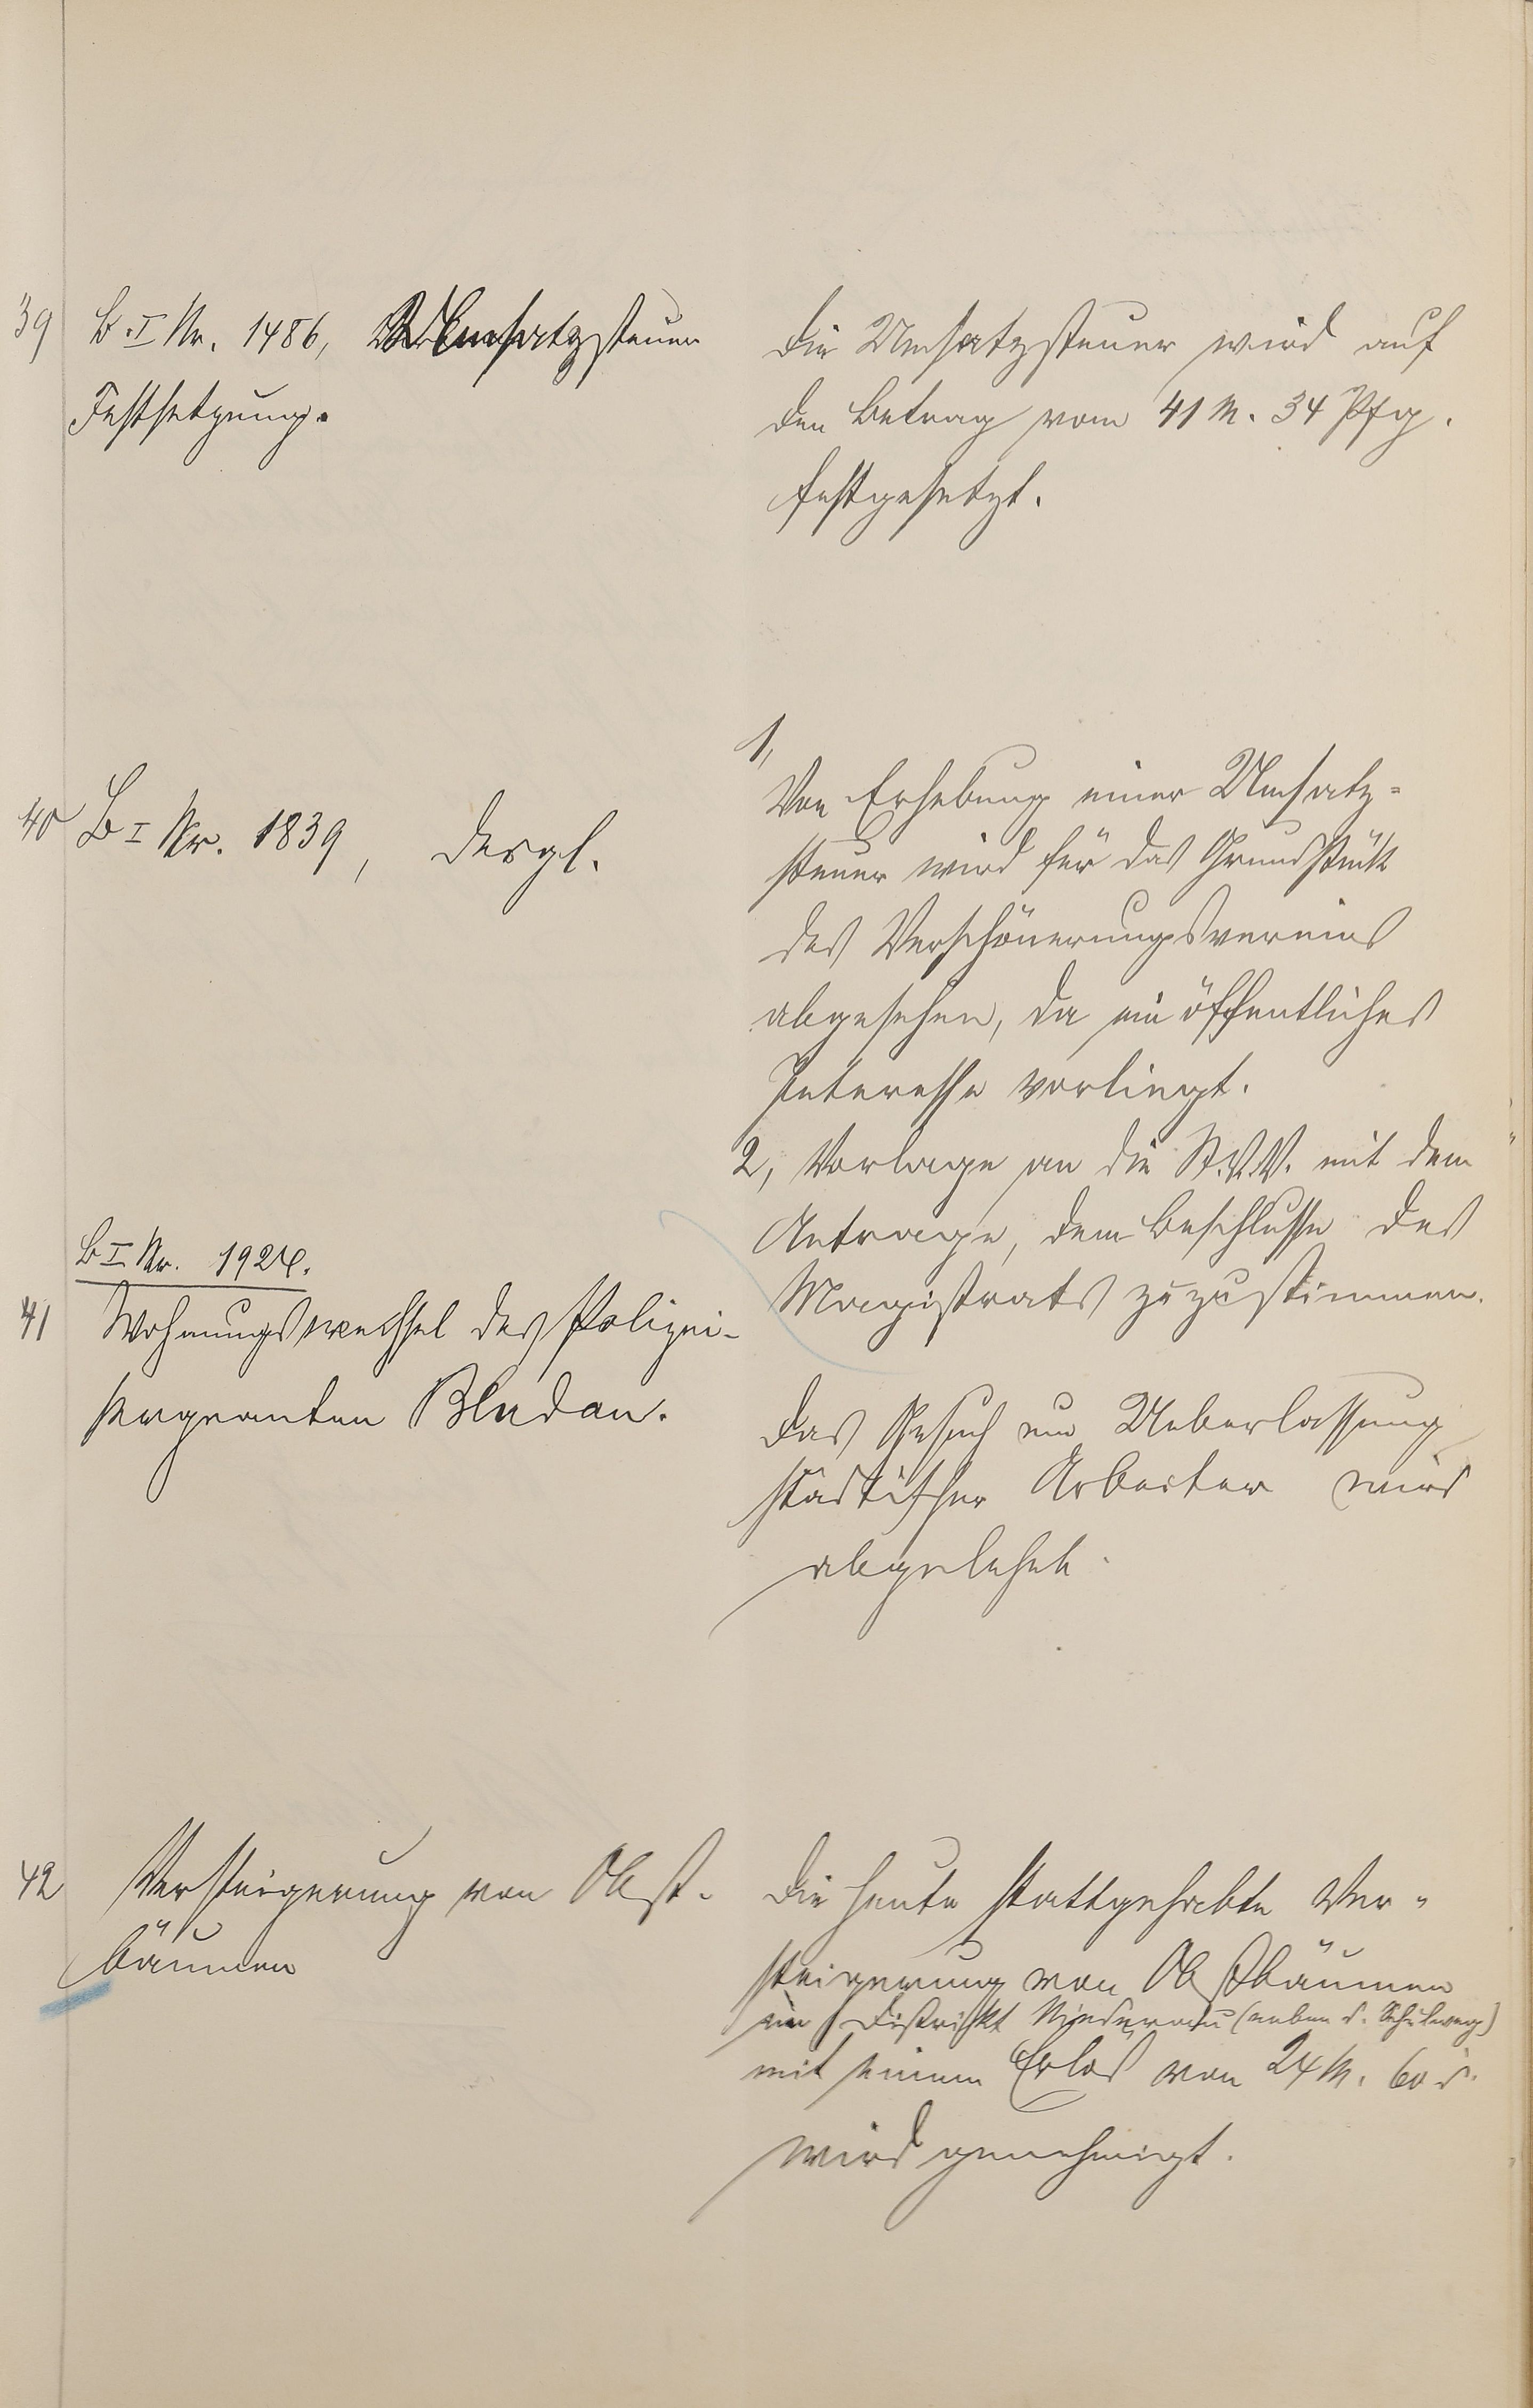 39 B. I Nr. 1486, Umsatzsteuer
Festsetzung.
Die Umsatzsteuer wird auf
den Betrag vom 41 M. 34 Pfg.
festgesetzt.
40 B I Nr. 1839, desgl.
1,
Von Erhebung einer Umsatz-
steuer wird für das Grundstück
des Verschönerungsvereins
abgesehen, da ein öffentliches
Interesse vorliegt.
2, Vorlage an die St.V.V. mit dem
Antrage, dem Beschlusse des
Magistrats zuzustimmen.
B I Nr. 1924.
41 Wohnungswechsel des Polizei-
sergeanten Bludau.
Das Gesuch um Ueberlassung
städtischer Arbeiter wird
abgelehnt.
42 Versteigerung von Obst-
bäumen
Die heute stattgehabte Ver-
steigerung von Obstbäumen
im Distrikt (neben d. Schulweg)
mit einem Erlös von 24 M. 60 d.
wird genehmigt.